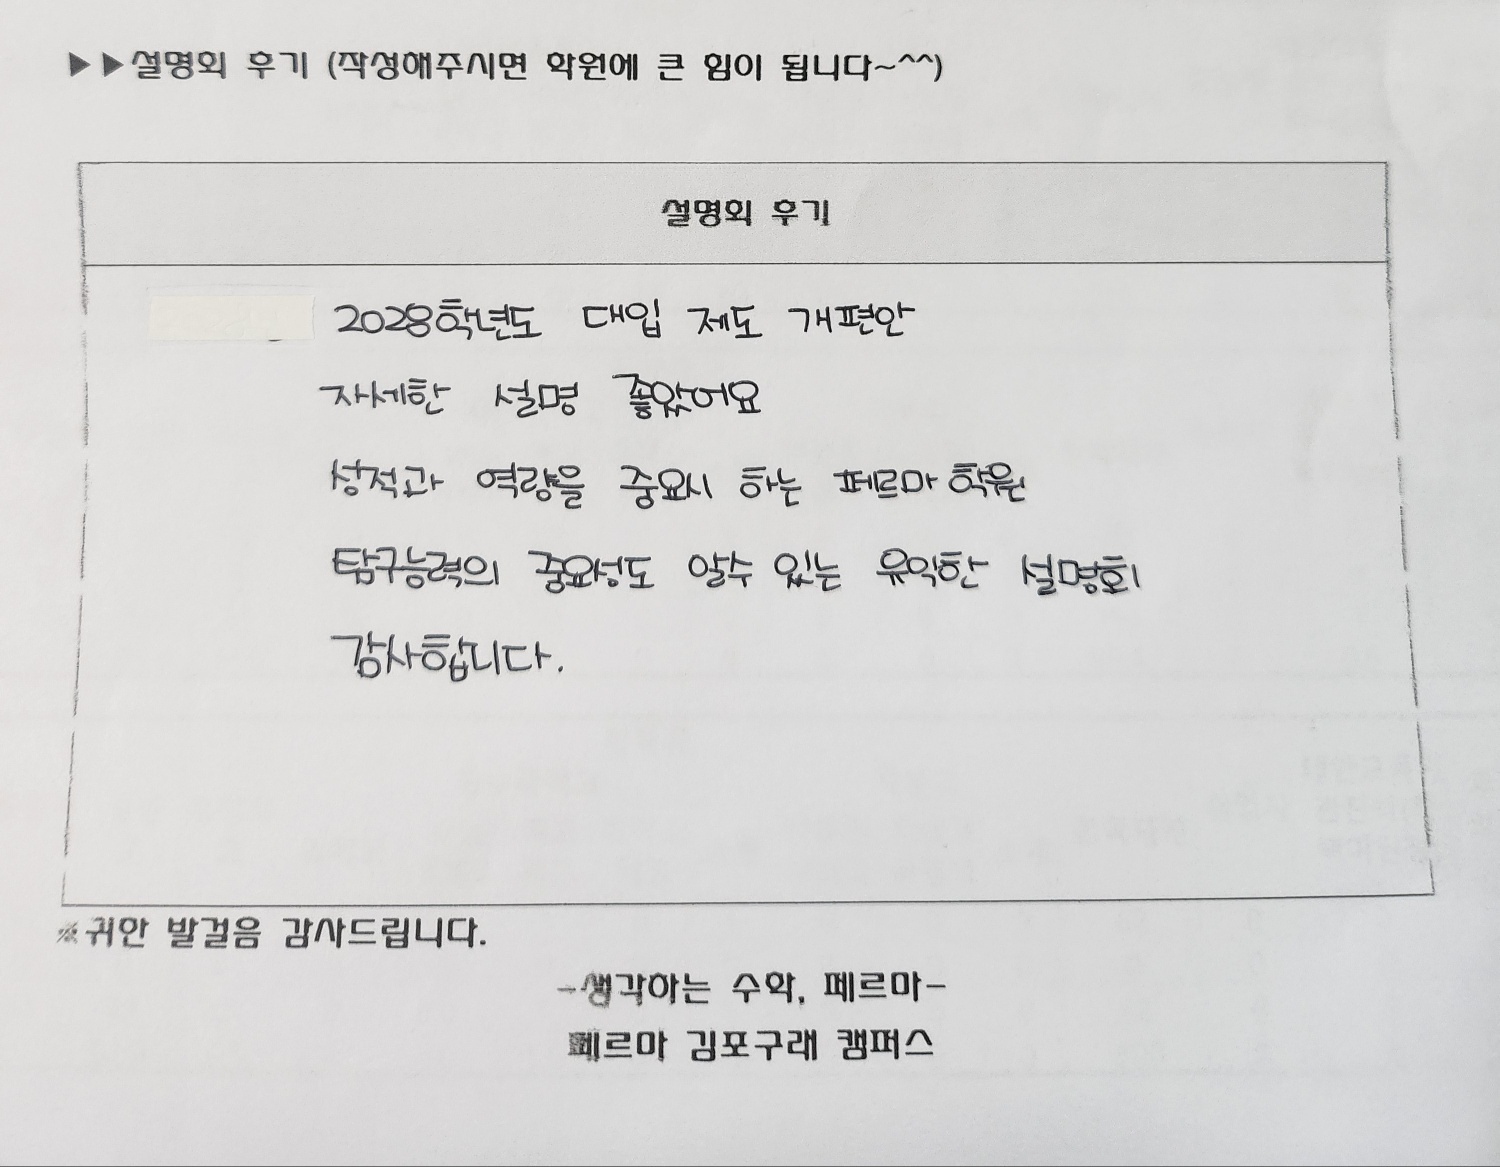 ▶▶설명회 후기 (작성해주시면 학원에 큰 힘이 됩니다~^^)
설명회 후기
2028학년도 대입 제도 개편안
자세한 설명 좋았어요
성적과 역량을 중요시 하는 페르마 학원
탐구능력의 중요성도 알수 있는 유익한 설명회
감사합니다.
※귀안 발걸음 감사드립니다.
-생각하는 수학, 페르마-
페르마 김포구래 캠퍼스